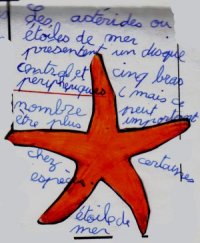 Les astérides ou
étoiles de mer
présentent un disque
central et cinq bras
périphériques (mais ce
nombre peut
être plus important
chez certaines
espèces
étoile de
mer